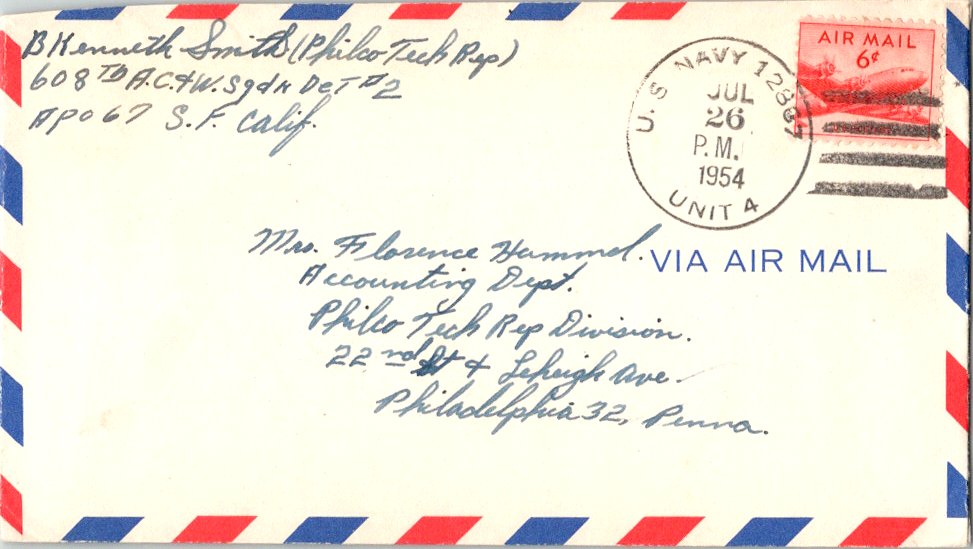 B Kenneth Smith (Philco Tech Rep)
608TH A.C.+W. Sqdn DeT #2
APO 67 S.F. Calif.
AIR MAIL
6¢
U.S. NAVY 12867
JUL
26
P.M.
1954
UNIT 4
VIA AIR MAIL
Mrs. Florence Hummel.
Accounting Dept.
Philco Tech Rep Division.
22nd St + Leheigh Ave.
Philadelphia 32, Penna.